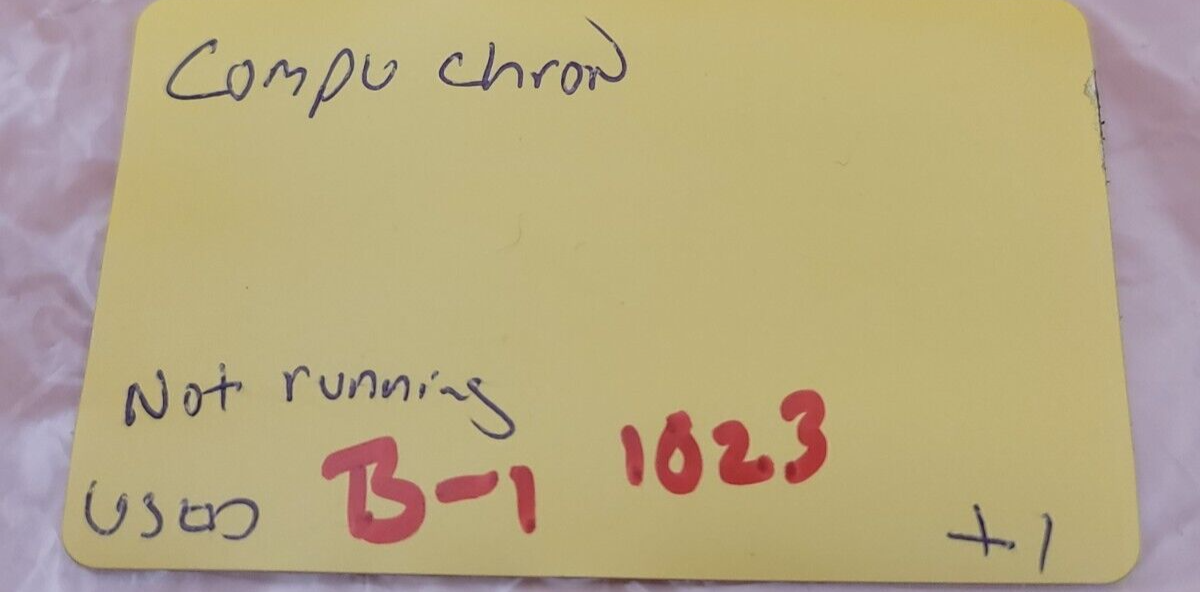 Compu chron
Not running
USED B-1 1023
+1